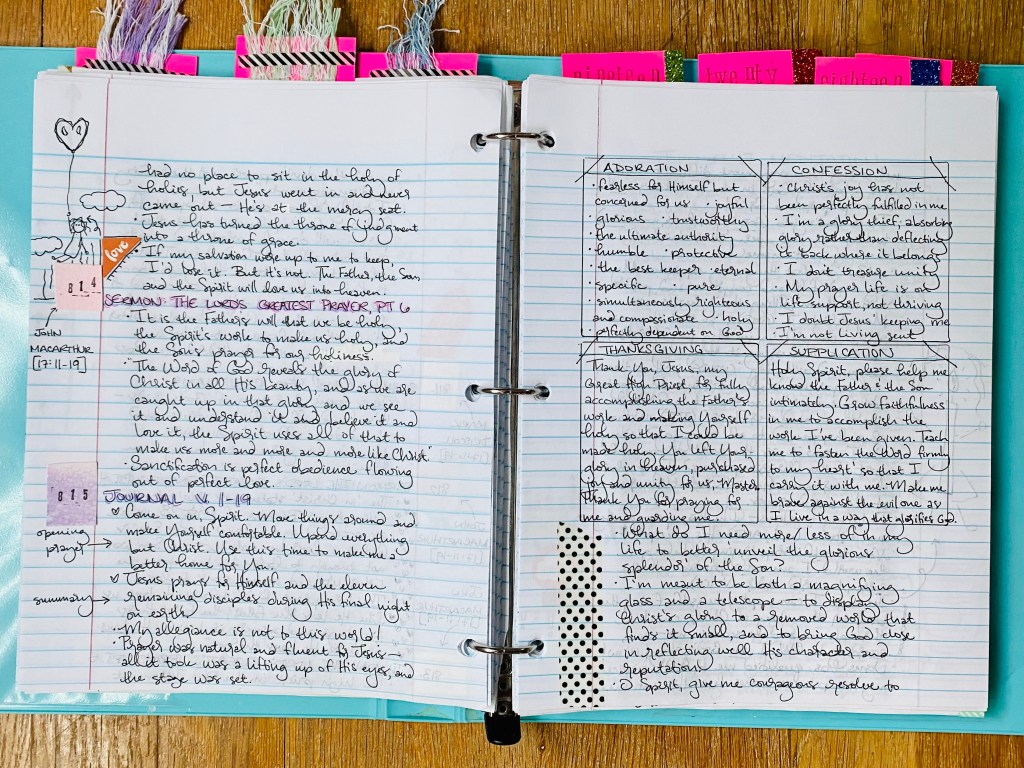 nineteen
twenty
eighteen
had no place to sit in the holy of
holies, but Jesus went in and never
came out — He's at the mercy seat.
· Jesus has turned the throne of judgment
into a throne of grace.
· If my salvation were up to me to keep,
I'd lose it. But it's not. The Father, the Son,
and the Spirit will love us into heaven.
love
814
SERMON: THE LORD'S GREATEST PRAYER, PT 6
JOHN
MACARTHUR
[17:11-19]
· It is the Father's will that we be holy,
the Spirit's work to make us holy, and
the Son's prayer for our holiness.
· The Word of God reveals the glory of
Christ in all His beauty, and as we are
caught up in that glory, and we see
it and understand it and believe it and
love it, the Spirit uses all of that to
make us more and more and more like Christ.
· Sanctification is perfect obedience flowing
out of perfect love.
815
JOURNAL V. 1-19
opening
prayer →
♡ Come on in, Spirit. Move things around and
make Yourself comfortable. Upend everything
but Christ. Use this time to make me a
better home for You.
summary →
♡ Jesus prays for Himself and the eleven
remaining disciples during His final night
on earth.
· My allegiance is not to this world!
· Prayer was natural and fluent for Jesus —
all it took was a lifting up of His eyes, and
the stage was set.
ADORATION
· fearless for Himself but
concerned for us · joyful
· glorious · trustworthy
· the ultimate authority
· humble · protective
· the best keeper · eternal
· specific · pure
· simultaneously righteous
and compassionate · holy
· perfectly dependent on God
CONFESSION
· Christ's joy has not
been perfectly fulfilled in me
· I'm a glory thief, absorbing
glory rather than deflecting
it back where it belongs
· I don't treasure unity
· My prayer life is on
life support, not thriving
· I doubt Jesus' keeping me
· I'm not living sent
THANKSGIVING
Thank You, Jesus, my
Great High Priest, for fully
accomplishing the Father's
work and making Yourself
holy so that I could be
made holy. You left Your
glory in heaven, purchased
joy and unity for us, Master.
Thank You for praying for
me and guarding me.
SUPPLICATION
Holy Spirit, please help me
know the Father & the Son
intimately. Grow faithfulness
in me to accomplish the
work I've been given. Teach
me to "fasten the Word firmly
to my heart" so that I
carry it with me. Make me
brave against the evil one as
I live in a way that glorifies God.
· What do I need more/less of in my
life to better "unveil the glorious
splendor" of the Son?
· I'm meant to be both a magnifying
glass and a telescope — to display
Christ's glory to a removed world that
finds it small, and to bring God close
in reflecting well His character and
reputation.
· O Spirit, give me courageous resolve to